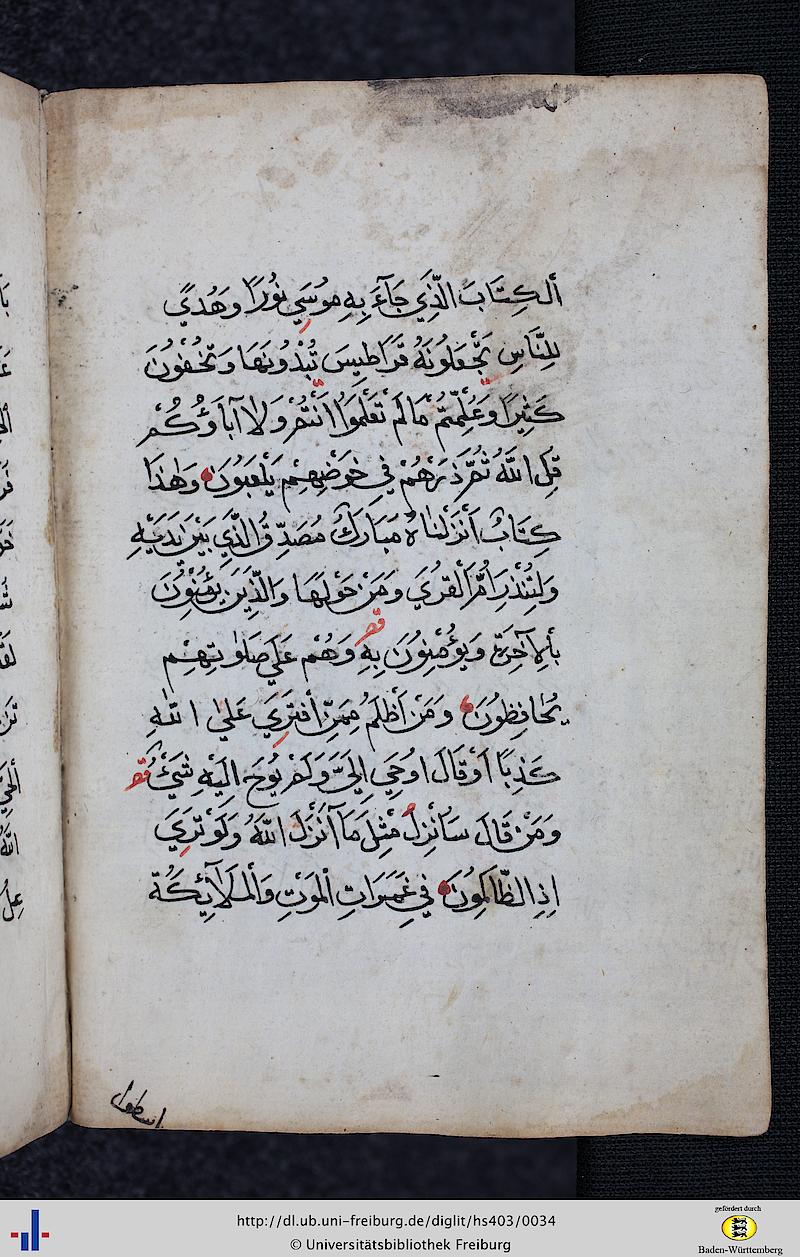 ألكِتَابَ الَّذِي جَآءَ بِهِ مُوسَي نُورًا وَهُدًي
لِلنَّاسِ تَجْعَلُونَهُ قَرَاطِيسَ تُبْدُونَهَا وَتُخْفُونَ
كَثِيرًا وَعُلِّمْتُمْ مَالَمْ تَعْلَمُوا أَنْتُمْ وَلَا آبَاؤُكُمْ
قُلِ اللَّهُ ثُمَّ ذَرْهُمْ فِي خَوْضِهِمْ يَلْعَبُونَ وَهٰذَا
كِتَابٌ أَنْزَلْنَاهُ مُبَارَكٌ مُصَدِّقُ الَّذِي بَيْنَ يَدَيْهِ
وَلِتُنْذِرَ أُمَّ الْقُرَي وَمَنْ حَوْلَهَا وَالَّذِينَ يُؤْمِنُونَ
بِألآخِرَةِ وَيُؤْمِنُونَ بِهِ وَهُمْ عَلَي صَلٰوتِهِمْ
يُحَافِظُونَ وَمَنْ أَظْلَمُ مِمَّنِ أفْتَرَي عَلَي اللّٰهِ
كَذِبًا أَوْقَالَ اُوحِيَ إِلَيَّ وَلَمْ يُوحَ إِلَيْهِ شَيْءٌ
وَمَنْ قَالَ سَأُنْزِلُ مِثْلَ مَآ أَنْزَلَ اللَّهُ وَلَوْ تَرَي
إِذِ الظَّالِمُونَ فِي غَمَرَاتِ ألْمَوْتِ وَألْمَلَآئِكَةُ
باسطوا
http://dl.ub.uni-freiburg.de/diglit/hs403/0034
© Universitätsbibliothek Freiburg
gefördert durch
Baden-Württemberg